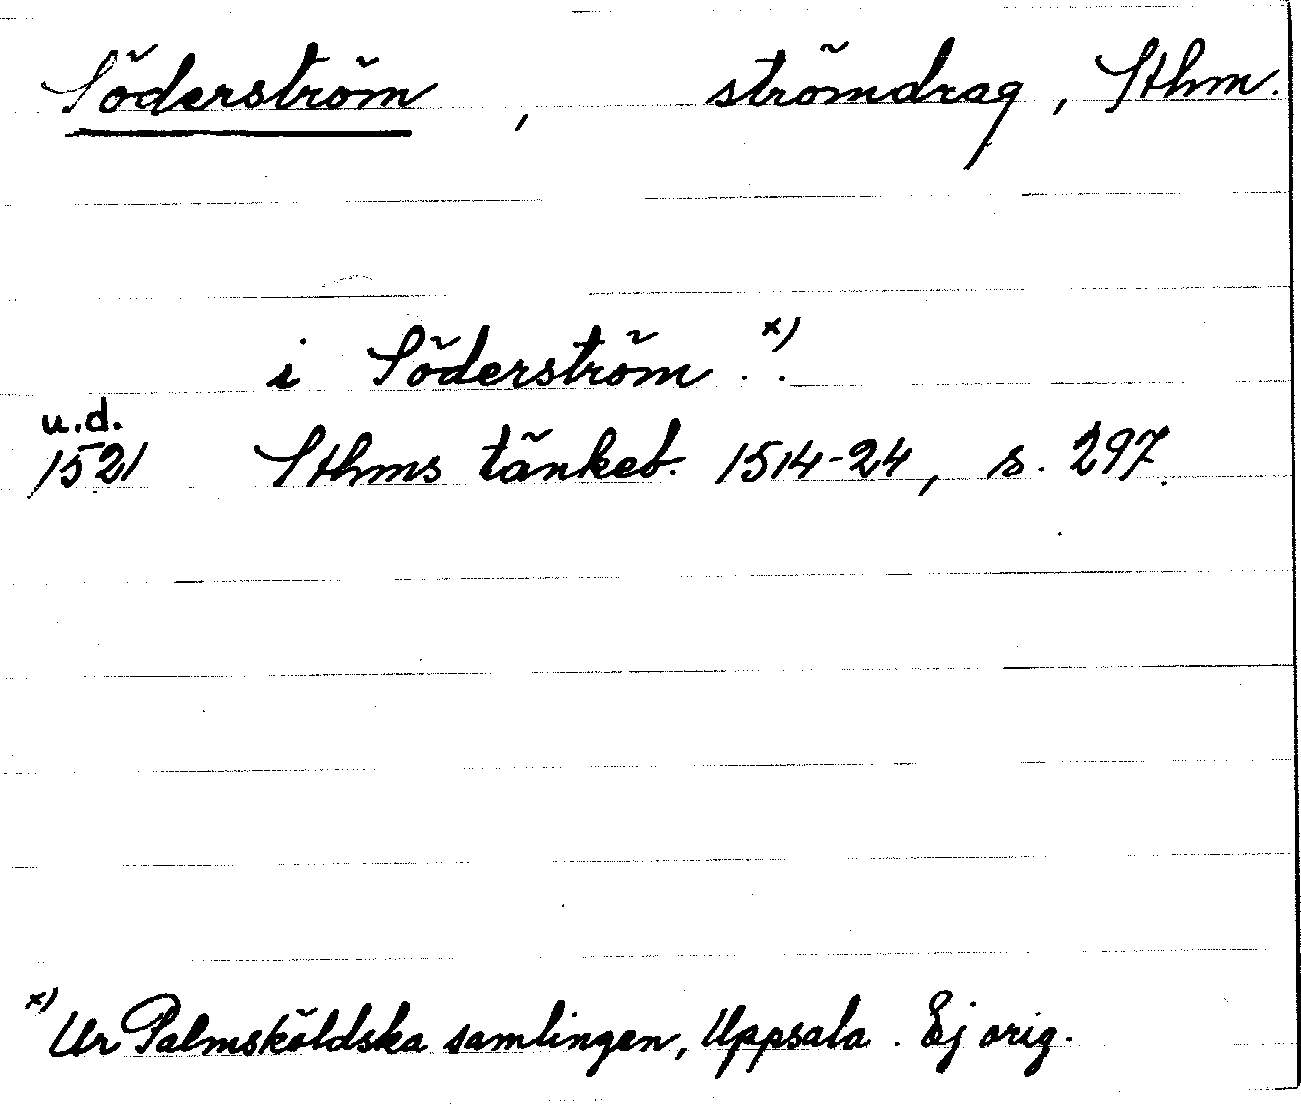 Söderström , strömdrag, Sthm.
i Söderström . . x)
u.d.
1521 Sthms tänkeb. 1514-24, s. 297.
x) Ur Palmsköldska samlingen, Uppsala. Ej orig.